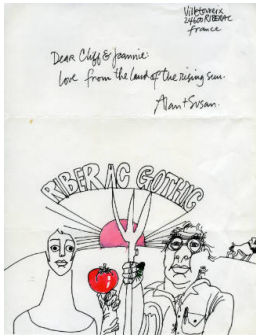 24600 RIBERAC
France
Dear Cliff & Joannie:
Love from the land of the rising sun.
Alan + Susan.
RIBERAC GOTHIC